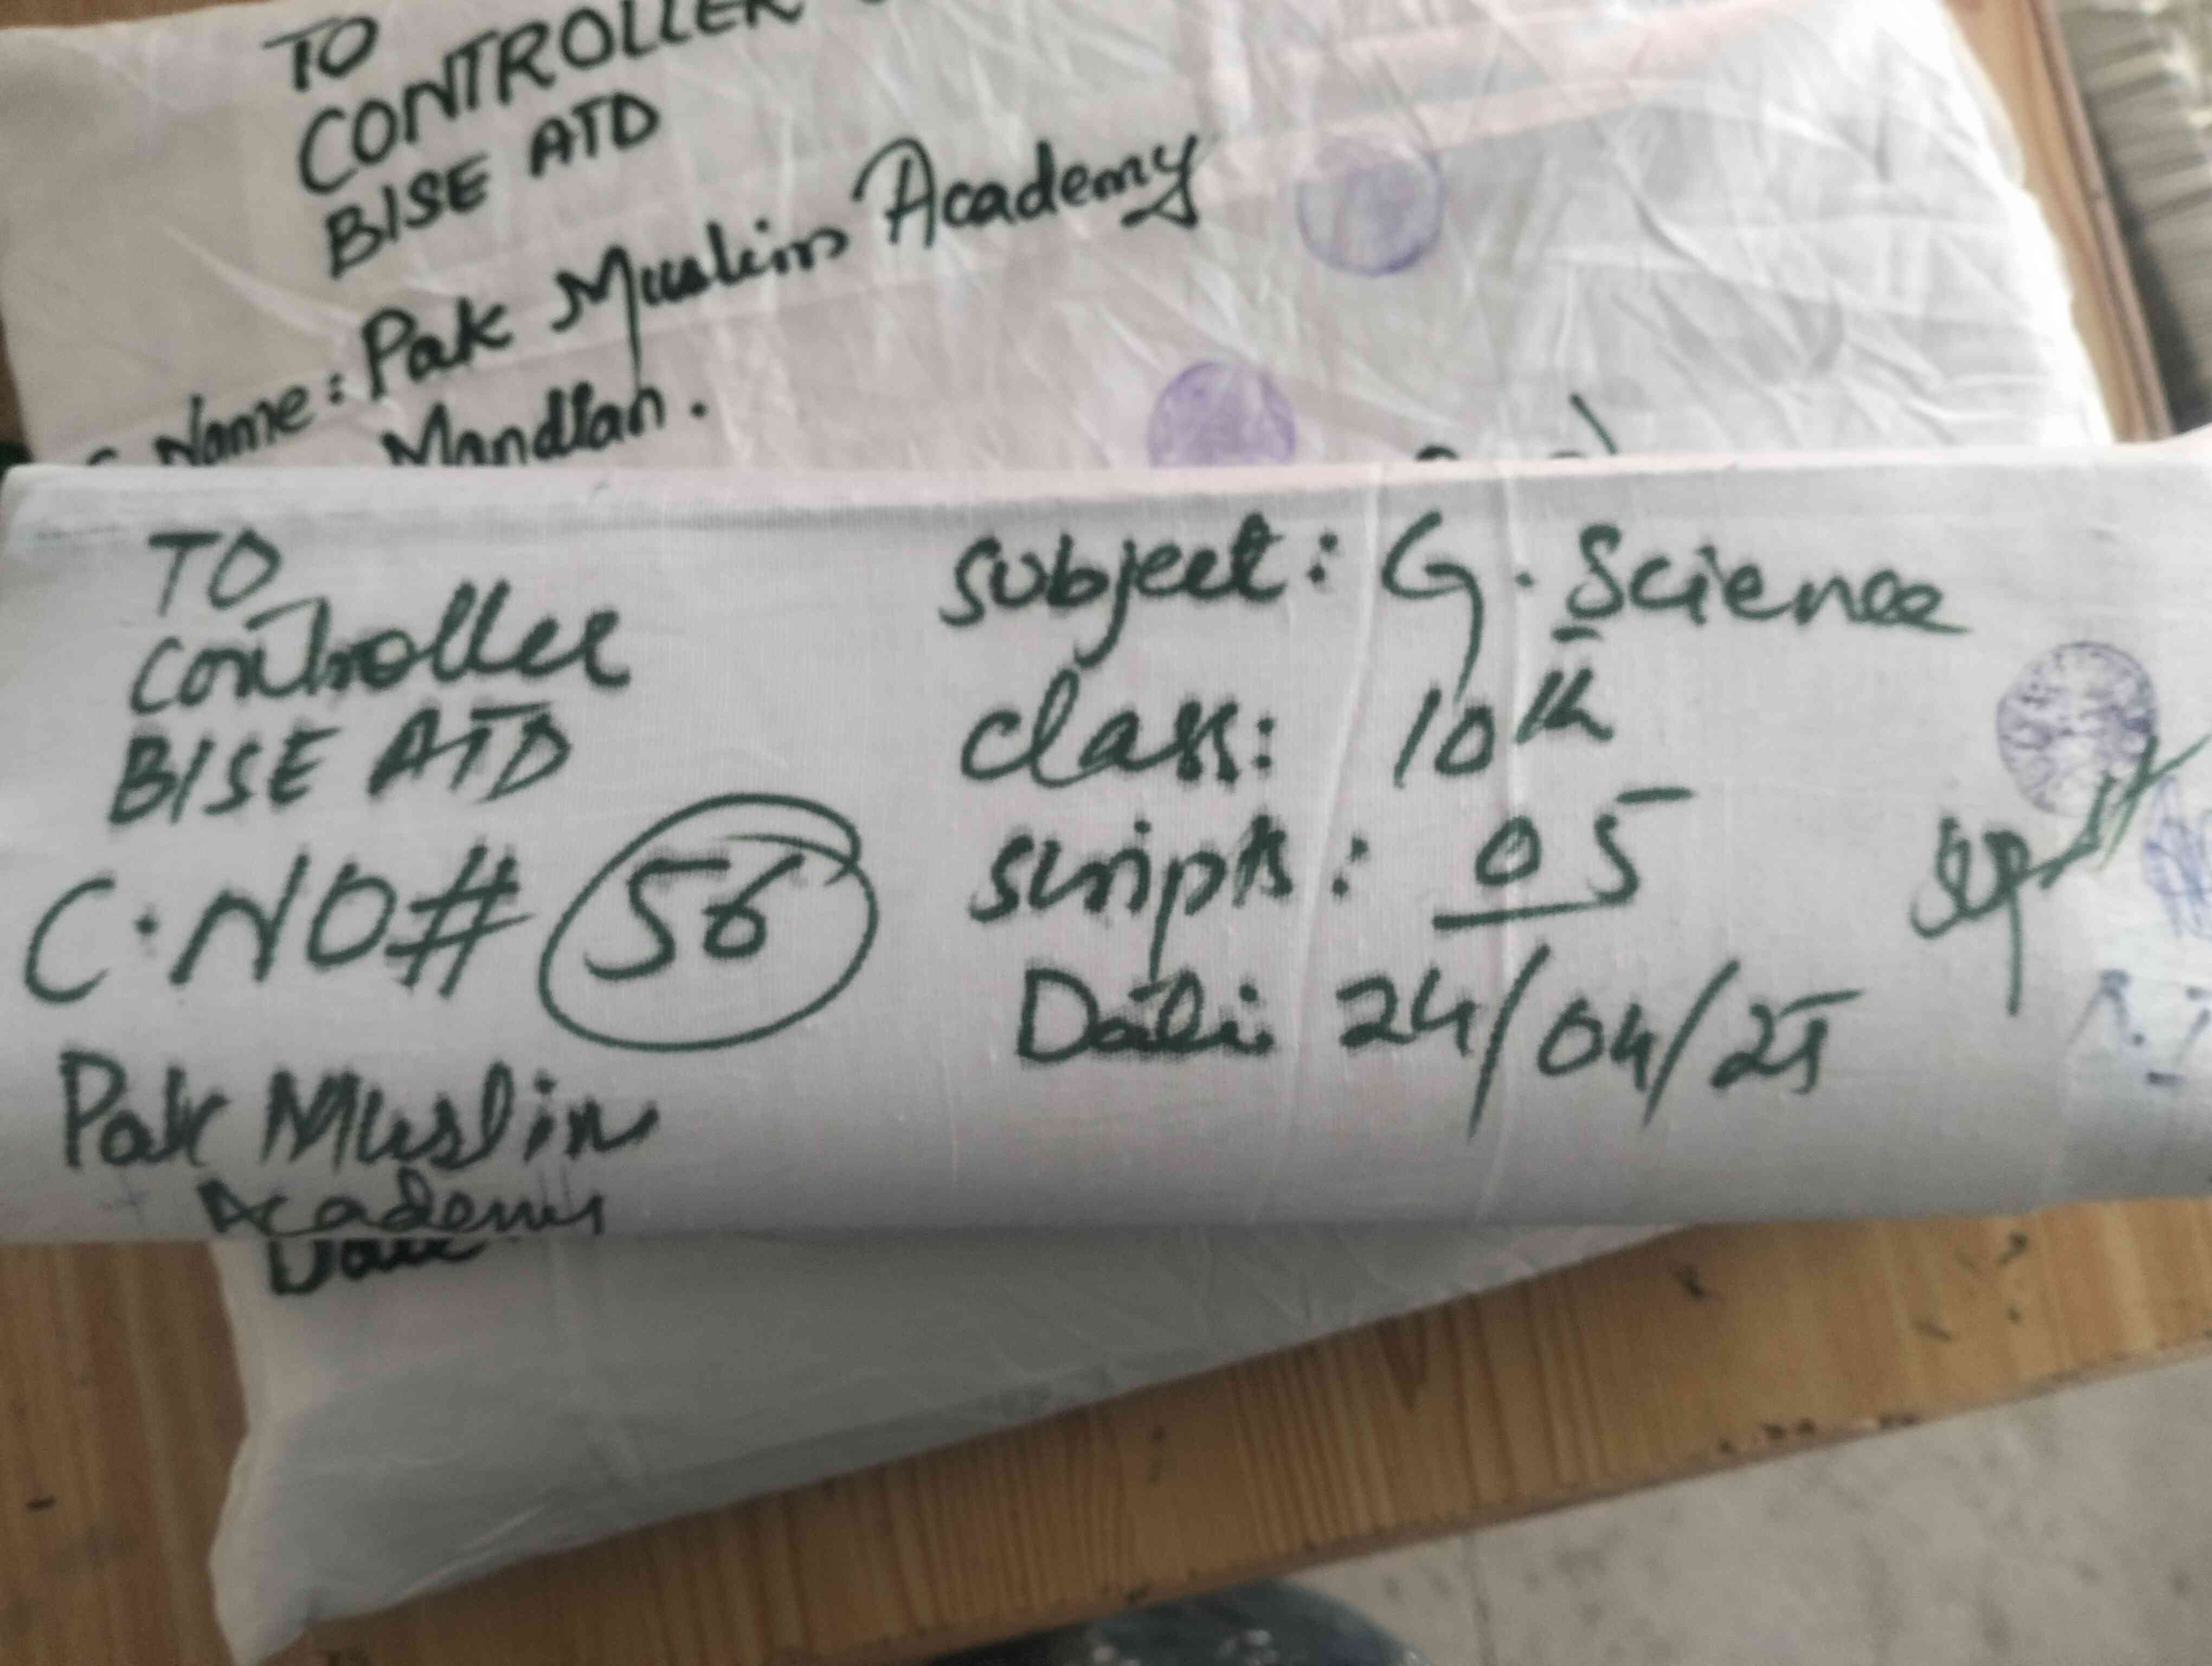 TO
CONTROLLER
BISE ATD
Name: Pak Muslim Academy
Mandian.
TO
Controller
BISE ATD
C.NO# 56
Pak Muslim
Academy
Subject: G. Science
class: 10th
scripts: 05
Date: 24/04/25